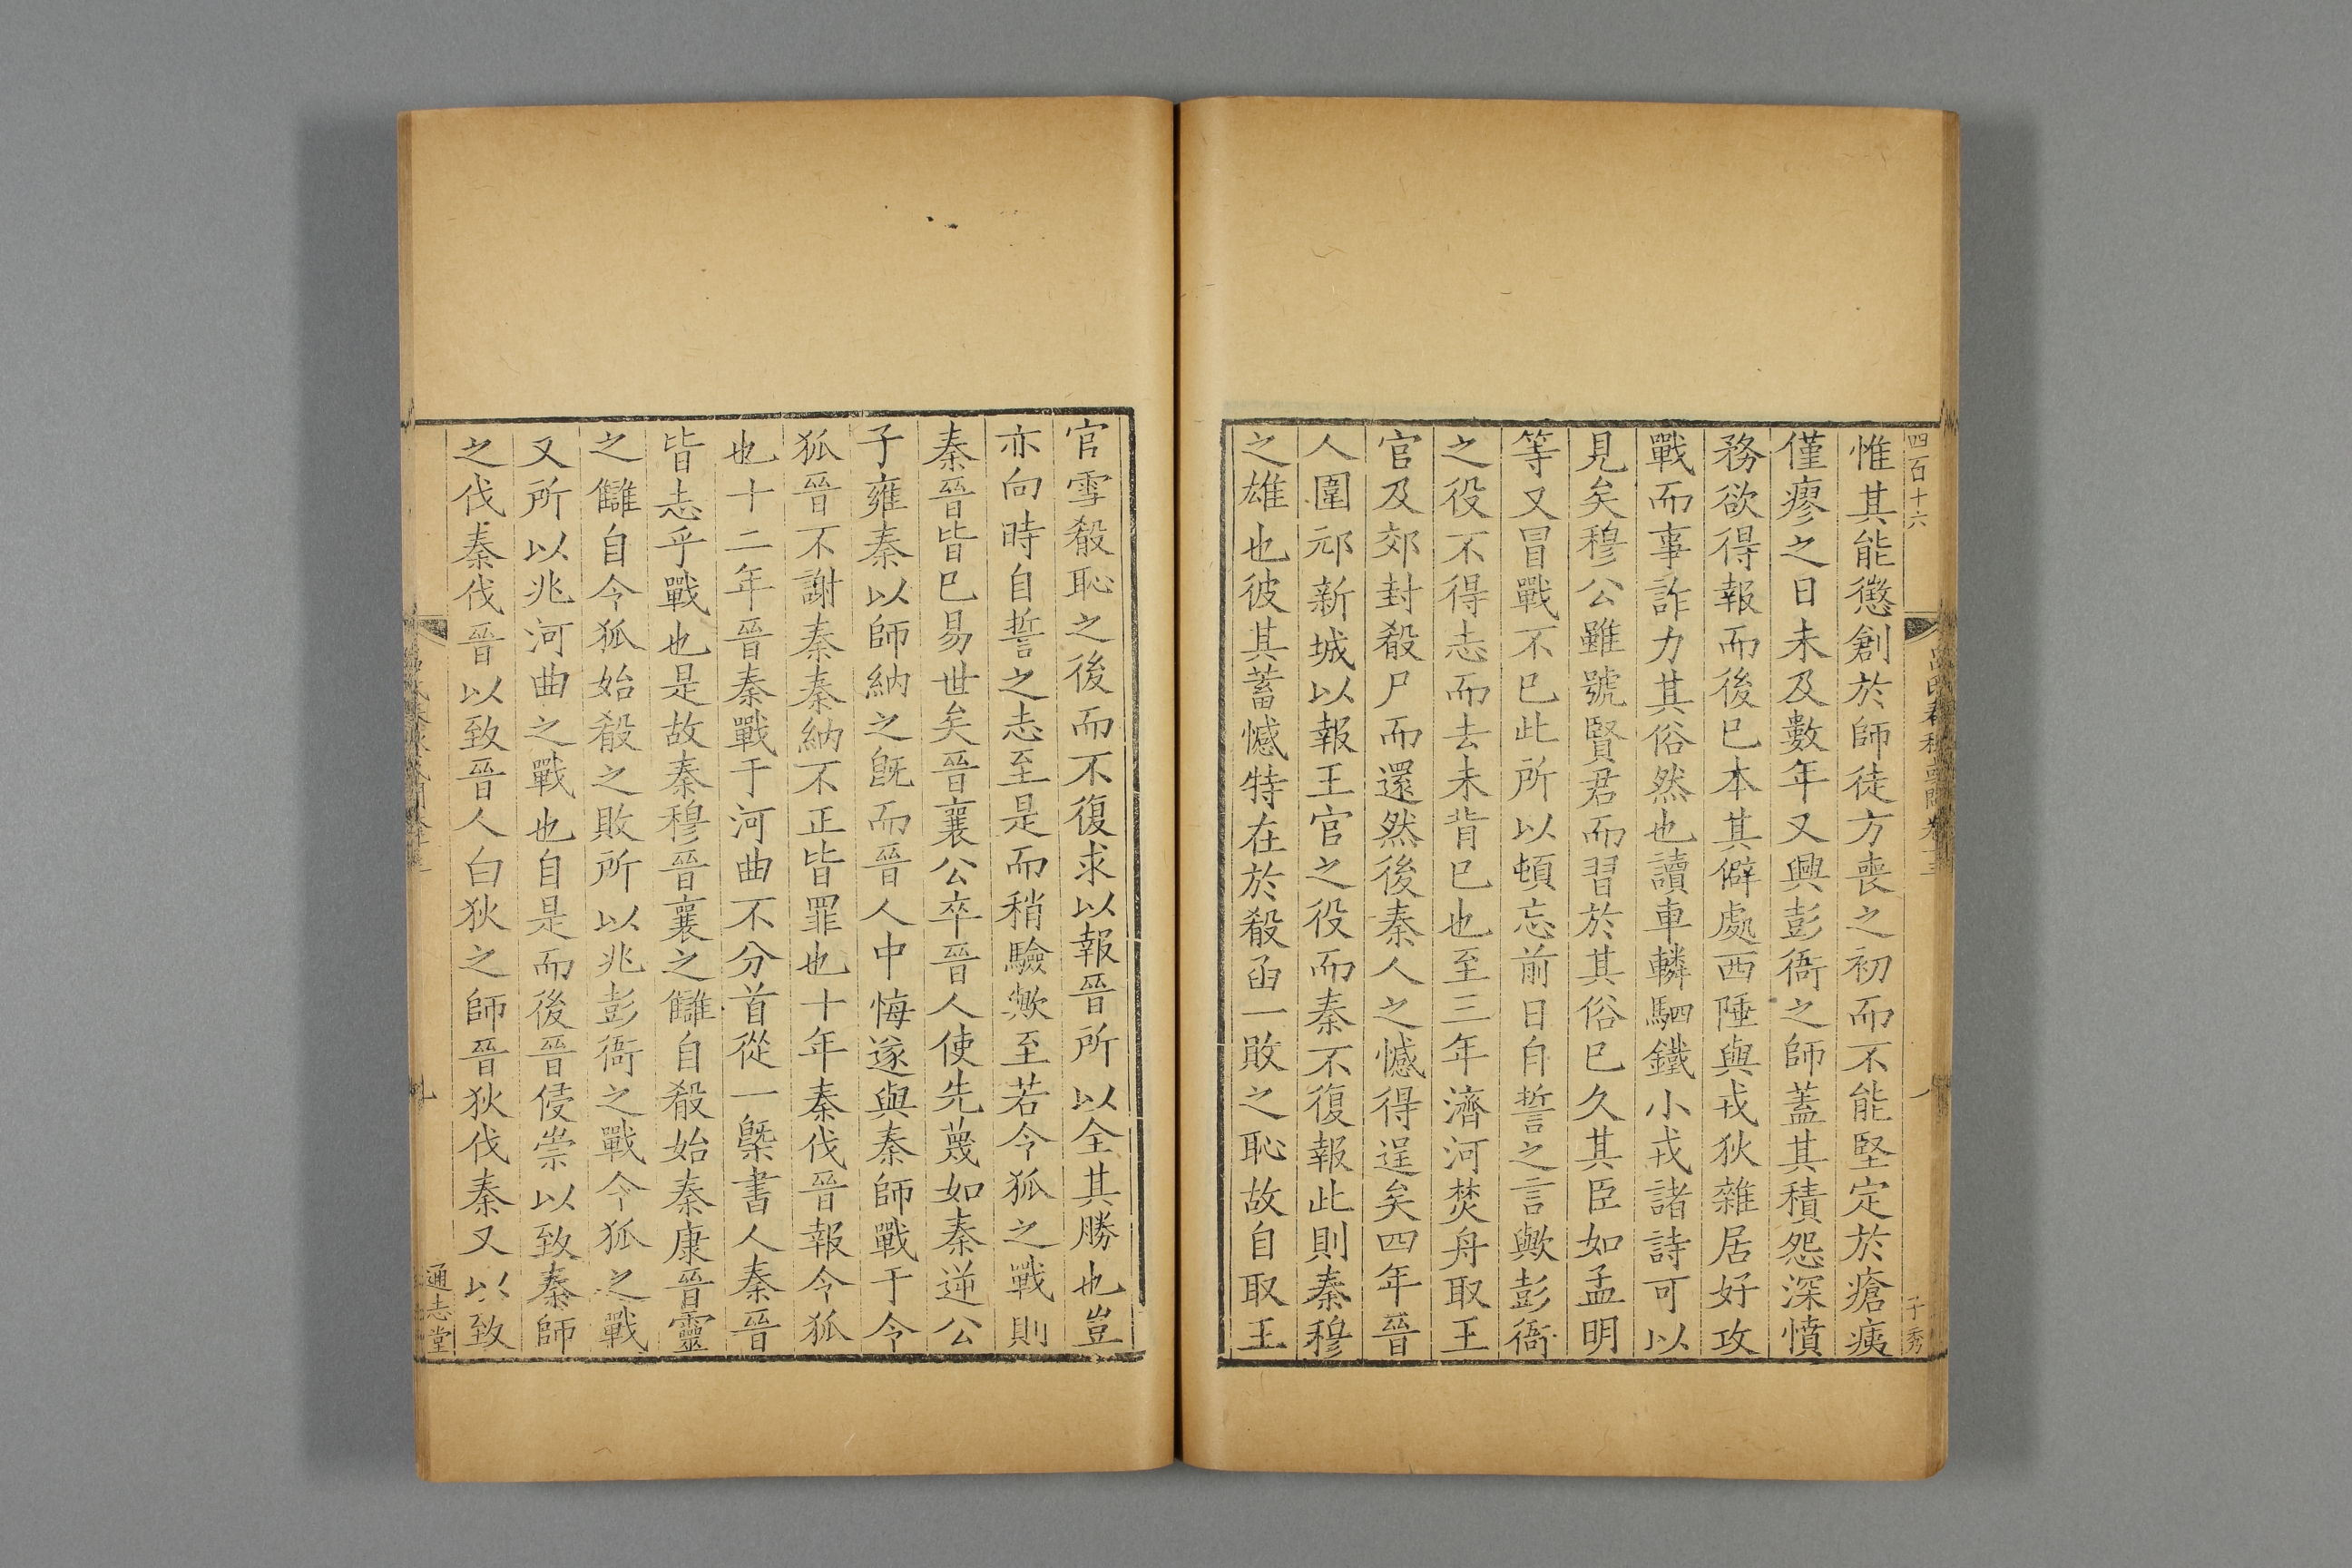 四百十六
子秀
惟其能懲創於師徒方喪之初而不能堅定於瘡痍
僅瘳之日未及數年又興彭衙之師蓋其積怨深憤
務欲得報而後已本其僻處西陲與戎狄雜居好攻
戰而事詐力其俗然也讀車轔駟鐵小戎諸詩可以
見矣穆公雖號賢君而習於其俗已久其臣如孟明
等又冒戰不已此所以頓忘前日自誓之言歟彭衙
之役不得志而去未背已也至三年濟河焚舟取王
官及郊封殽尸而還然後秦人之憾得逞矣四年晉
人圍邧新城以報王官之役而秦不復報此則秦穆
之雄也彼其蓄憾特在於殽函一敗之恥故自取王
官雪殽恥之後而不復求以報晉所以全其勝也豈
亦向時自誓之志至是而稍驗歟至若令狐之戰則
秦晉皆已易世矣晉襄公卒晉人使先蔑如秦逆公
子雍秦以師納之旣而晉人中悔遂與秦師戰于令
狐晉不謝秦秦納不正皆罪也十年秦伐晉報令狐
也十二年晉秦戰于河曲不分首從一槩書人秦晉
皆志乎戰也是故秦穆晉襄之讎自殽始秦康晉靈
之讎自令狐始殽之敗所以兆彭衙之戰令狐之戰
又所以兆河曲之戰也自是而後晉侵崇以致秦師
之伐秦伐晉以致晉人白狄之師晉狄伐秦又以致
九
通志堂